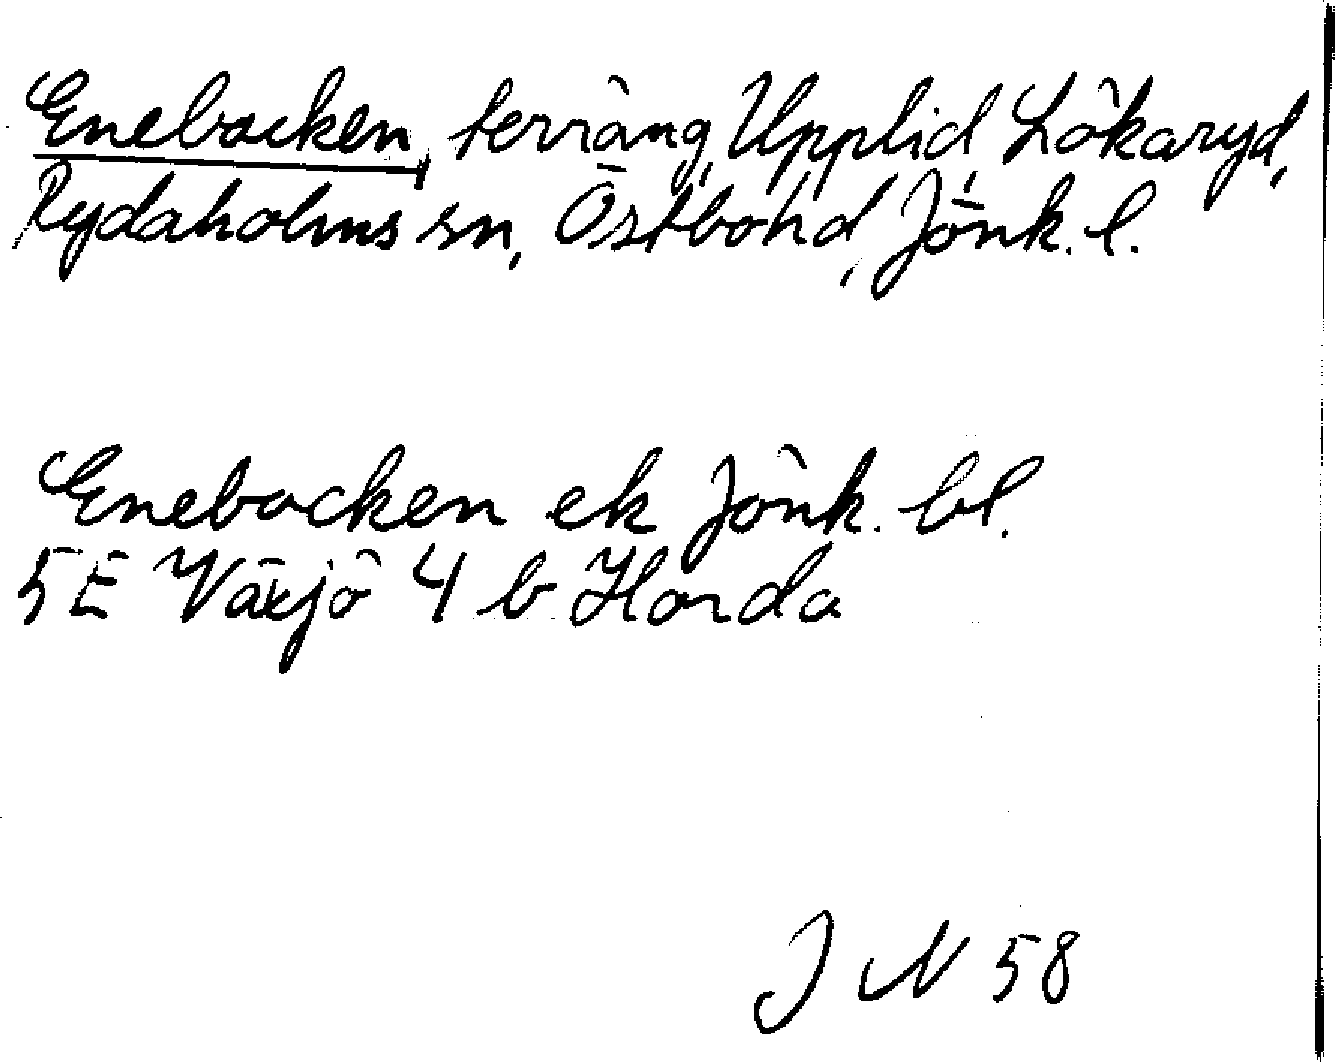 Enebacken, terräng, Upplid, Lökaryd,
Rydaholms sn, Östbohd, Jönk. l.
Enebacken ek Jönk. bl.
5E Växjö 4 b Horda
J N 58